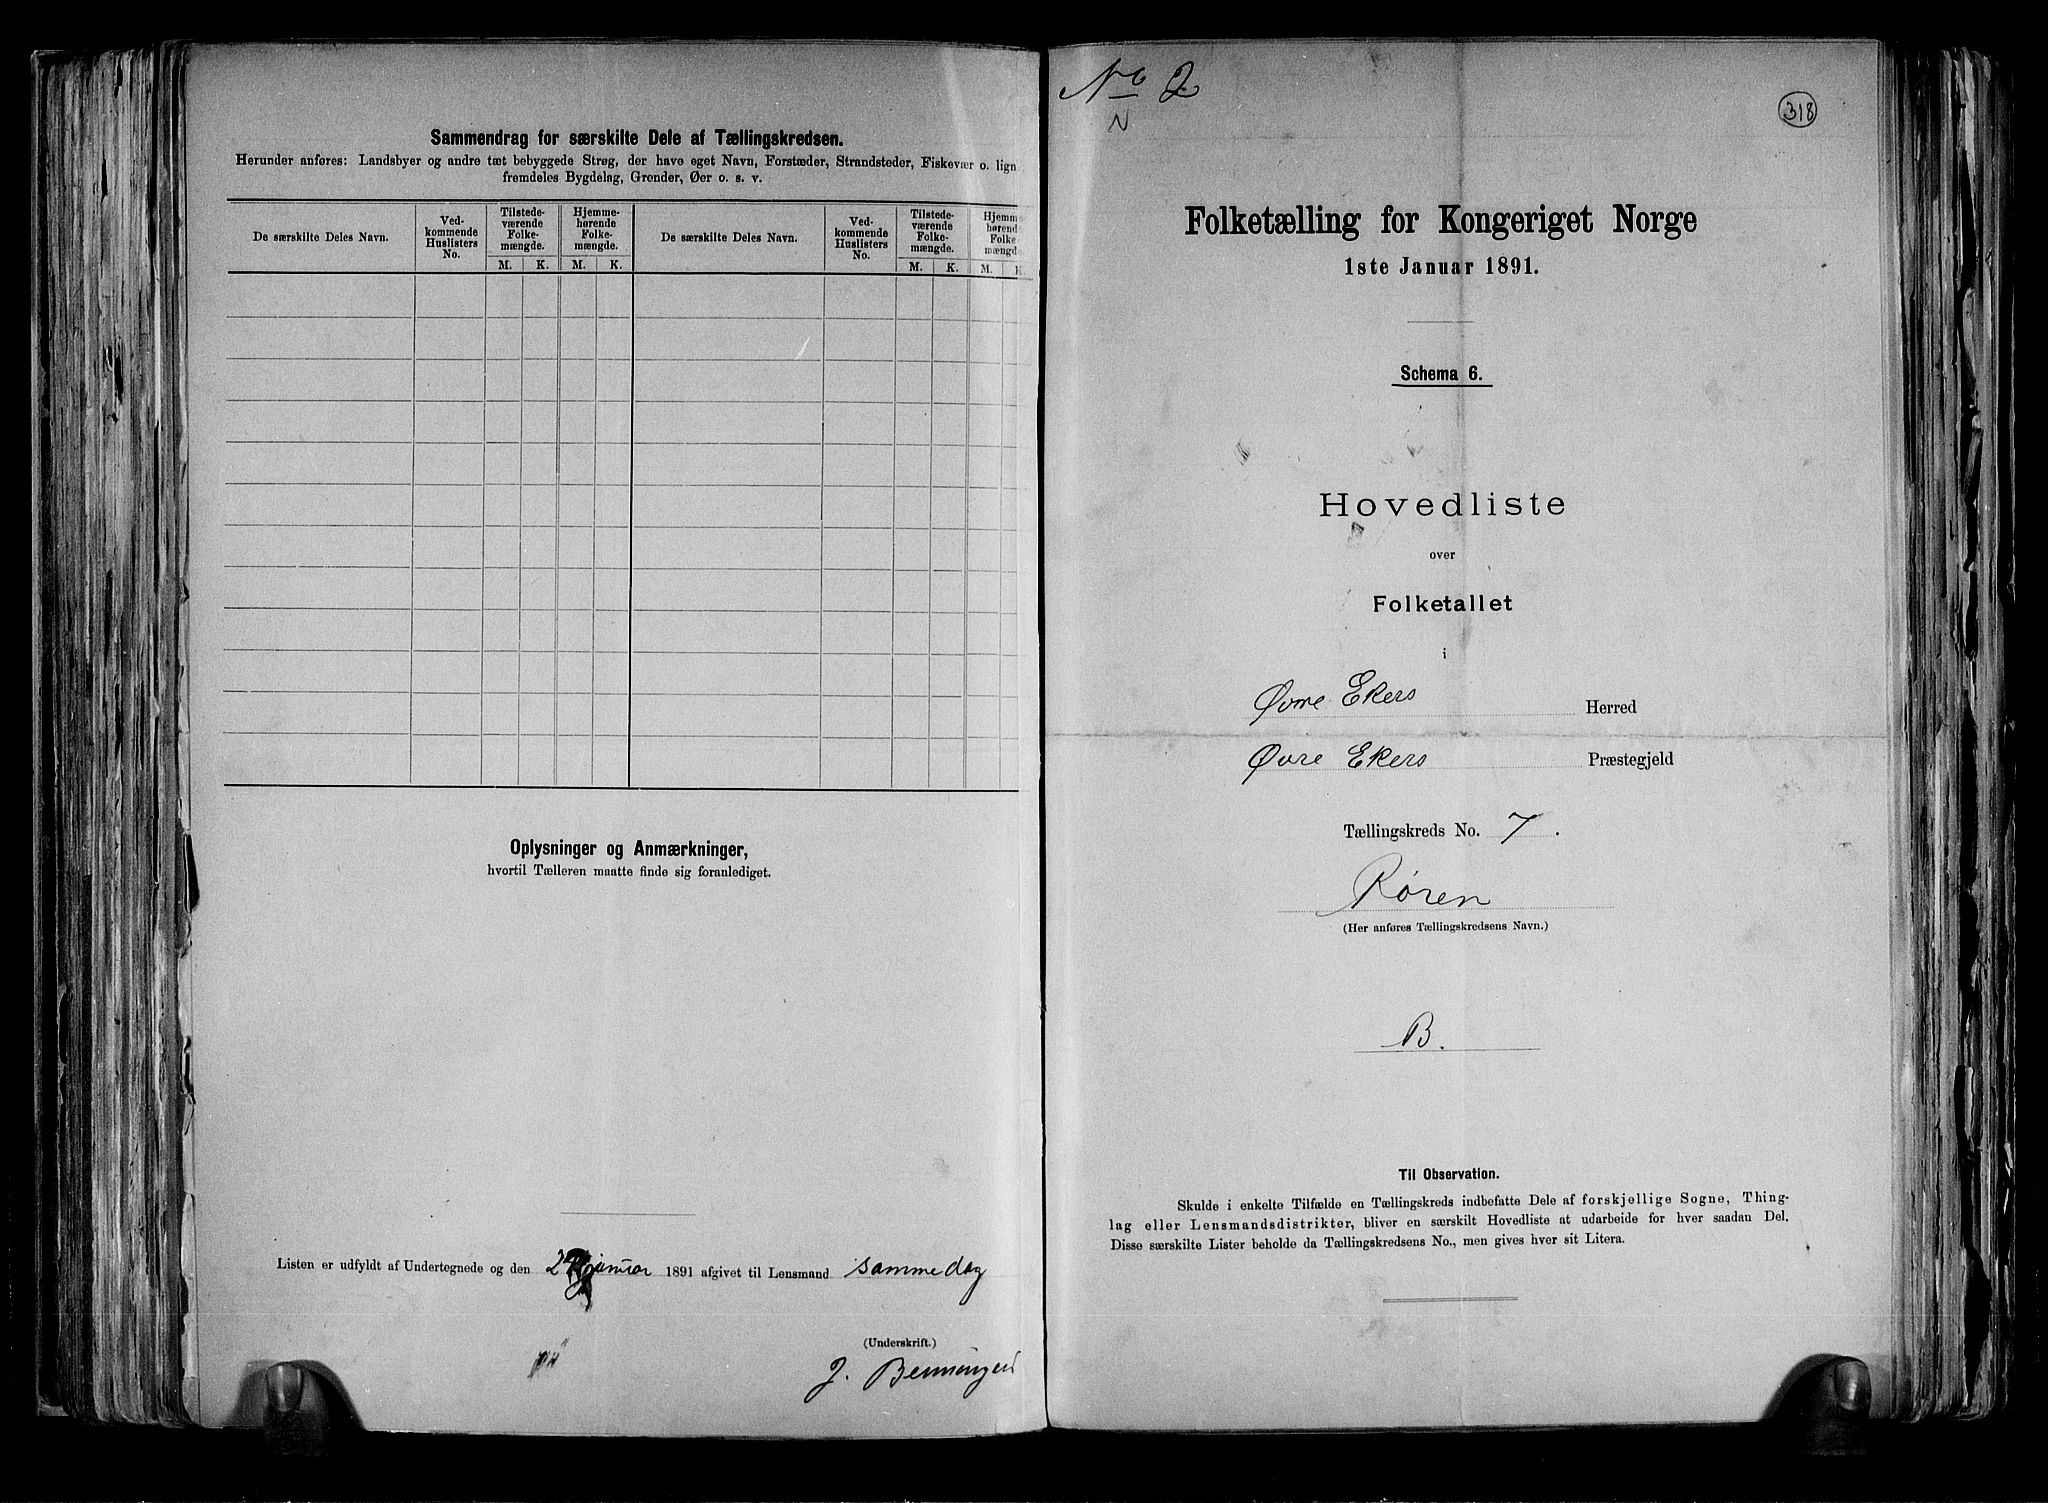 Sammendrag for særskilte Dele af Tællingskredsen.
Herunder anføres: Landsbyer og andre tæt bebyggede Strøg, der have eget Navn, Forstæder, Strandsteder, Fiskevær o. lign.,
fremdeles Bygdelag, Grender, Øer o. s. v.
De særskilte Deles Navn.
Ved-
kommende
Huslisters
No.
Tilstede-
værende
Folke-
mængde.
Hjemme-
hørende
Folke-
mængde.
De særskilte Deles Navn.
Ved-
kommende
Huslisters
No.
Tilstede-
værende
Folke-
mængde.
Hjemm
hørend
Folke
mængd
M. K. M. K. M. K. M. K
Oplysninger og Anmærkninger,
hvortil Tælleren maatte finde sig foranlediget.
Listen er udfyldt af Undertegnede og den januar 1891 afgivet til Lensmand samme dag
(Underskrift.)
J.
No 2
N
318
Folketælling for Kongeriget Norge
1ste Januar 1891.
Schema 6.
Hovedliste
over
Folketallet
i
Øvre Ekers Herred
Øvre Ekers Præstegjeld
Tællingskreds No. 7.
Røren
(Her anføres Tællingskredsens Navn.)
B.
Til Observation.
Skulde i enkelte Tilfælde en Tællingskreds indbefatte Dele af forskjellige Sogne, Thing-
lag eller Lensmandsdistrikter, bliver en særskilt Hovedliste at udarbeide for hver saadan Del.
Disse særskilte Lister beholde da Tællingskredsens No., men gives hver sit Litera.